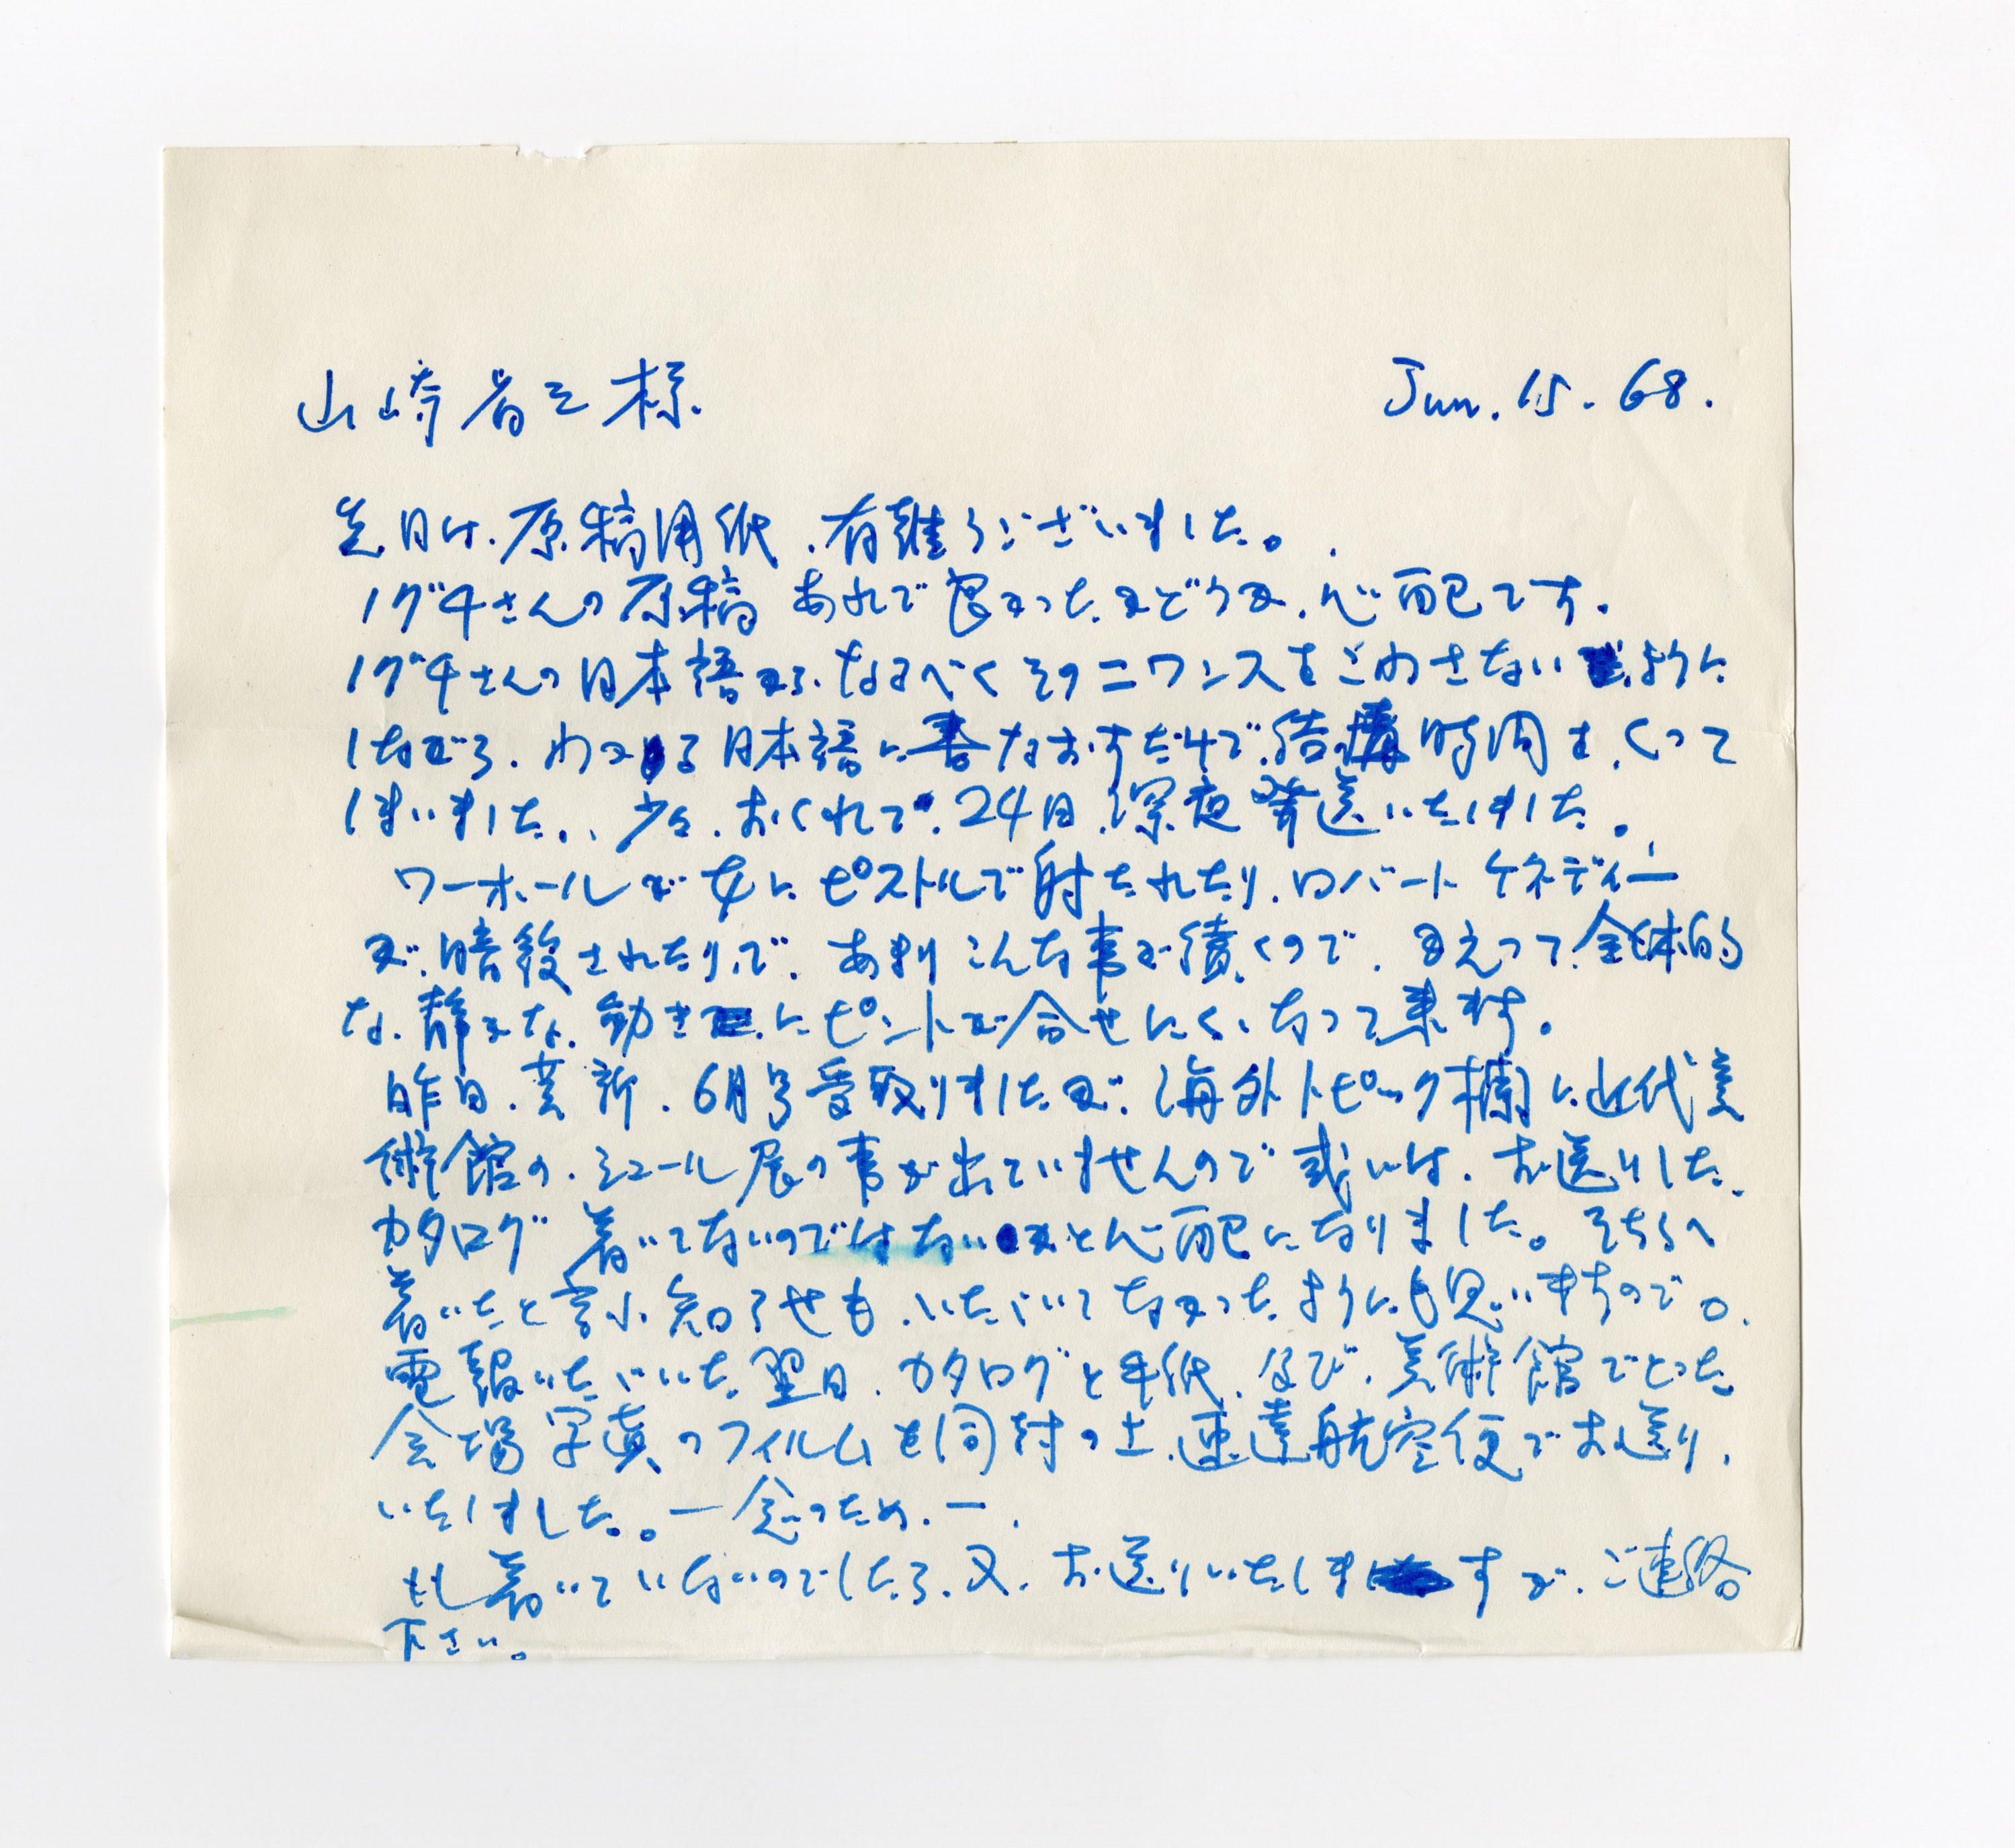 山崎省三様
Jun. 15. 68.
先日は、原稿用紙、有難うございました。
ノグチさんの原稿 あれで良かったかどうか、心配です。
ノグチさんの日本語から、なるべくそのニワンスをこわさないように
しながら、わかる日本語に書なおすだけで、結構時間を、くって
しまいました、、少々、おくれて、24日、深夜発送いたしました。
ワーホールが女にピストルで射たれたり、ロバートケネディー
が、暗殺されたりで、あまりこんな事が続くので、かえって、全体的
な、静かな、動きにピントが合せにくくなって来ます。
昨日、芸新、6月号受取りましたが、海外トピック欄に近代美
術館の、シュール展の事が出ていませんので或いは、お送りした、
カタログ 着いてないのではないかと心配になりました。そちらへ
着いたと言ふ知らせも、いただいてなかったようにも思いますので。
電報いただいた翌日、カタログと手紙、及び、美術館でとった
会場写真のフィルムを同封の上、速達航空便でお送り、
いたしました。。ー念のため、ー、
もし着いていないのでしたら、又、お送りいたしますが、ご連絡
下さい。